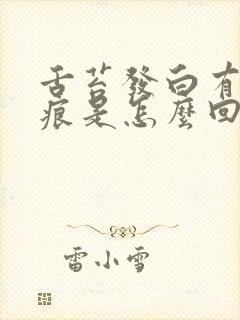 舌苔發白有
痕是怎麼回
雷小雪